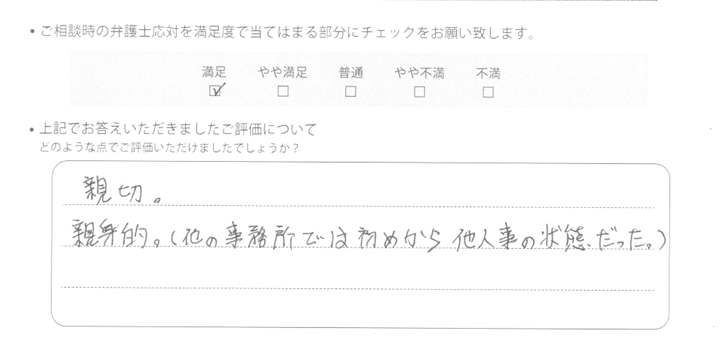 ・ご相談時の弁護士応対を満足度で当てはまる部分にチェックをお願い致します。
満足 やや満足 普通 やや不満 不満
☑ ☐ ☐ ☐ ☐
・上記でお答えいただきましたご評価について
どのような点でご評価いただけましたでしょうか?
親切。
親身的。(他の事務所では初めから他人事の状態だった。)